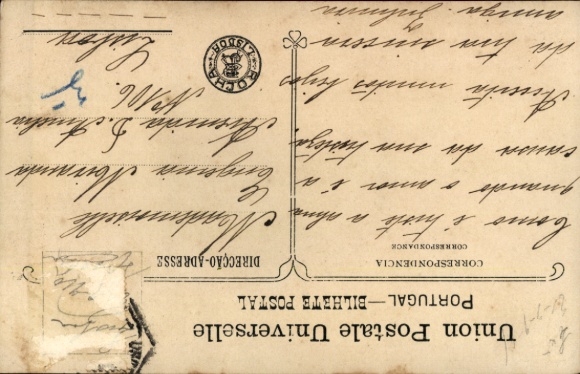 Union Postale Universelle
PORTUGAL—BILHETE POSTAL
CORRESPONDENCIA
CORRESPONDANCE
DIRECÇÃO-ADRESSE
Como é triste a alma
quando o amor é a
causa da sua tristeza.
Acceita muitos beijos
da tua sincera
amiga Julmira
Mademoiselle
Eugenia Miranda
Avenida D. Amelia
Nº 106.
Lisboa
ROCHA
LISBOA